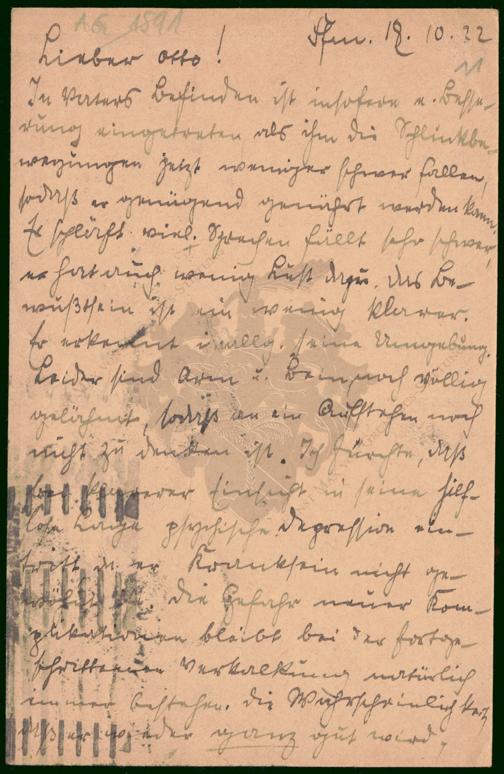 A.G. 1891
Ffm. 18. 10. 22
Lieber Otto!
In Vaters Befinden ist insofern e. Besse-
rung eingetreten als ihm die Schluckbe-
wegungen jetzt weniger schwer fallen,
sodaß er genügend genährt werden kann.
Er schläft viel. Sprechen fällt sehr schwer,
er hat auch wenig Lust dazu. Das Be-
wußtsein ist ein wenig klarer.
Er erkennt i. allg. seine Umgebung.
Leider sind Arm u. Bein noch völlig
gelähmt, sodaß an ein Aufstehen noch
nicht zu denken ist. Ich fürchte, daß
bei klarerer Einsicht in seine hilf-
lose Lage psychische Depression ein-
tritt da er Kranksein nicht ge-
wöhnt ist. Die Gefahr neuer Kom-
plikationen bleibt bei der fortge-
schrittenen Verkalkung natürlich
immer bestehen. Die Wahrscheinlichkeit
daß er wieder ganz gut wird,